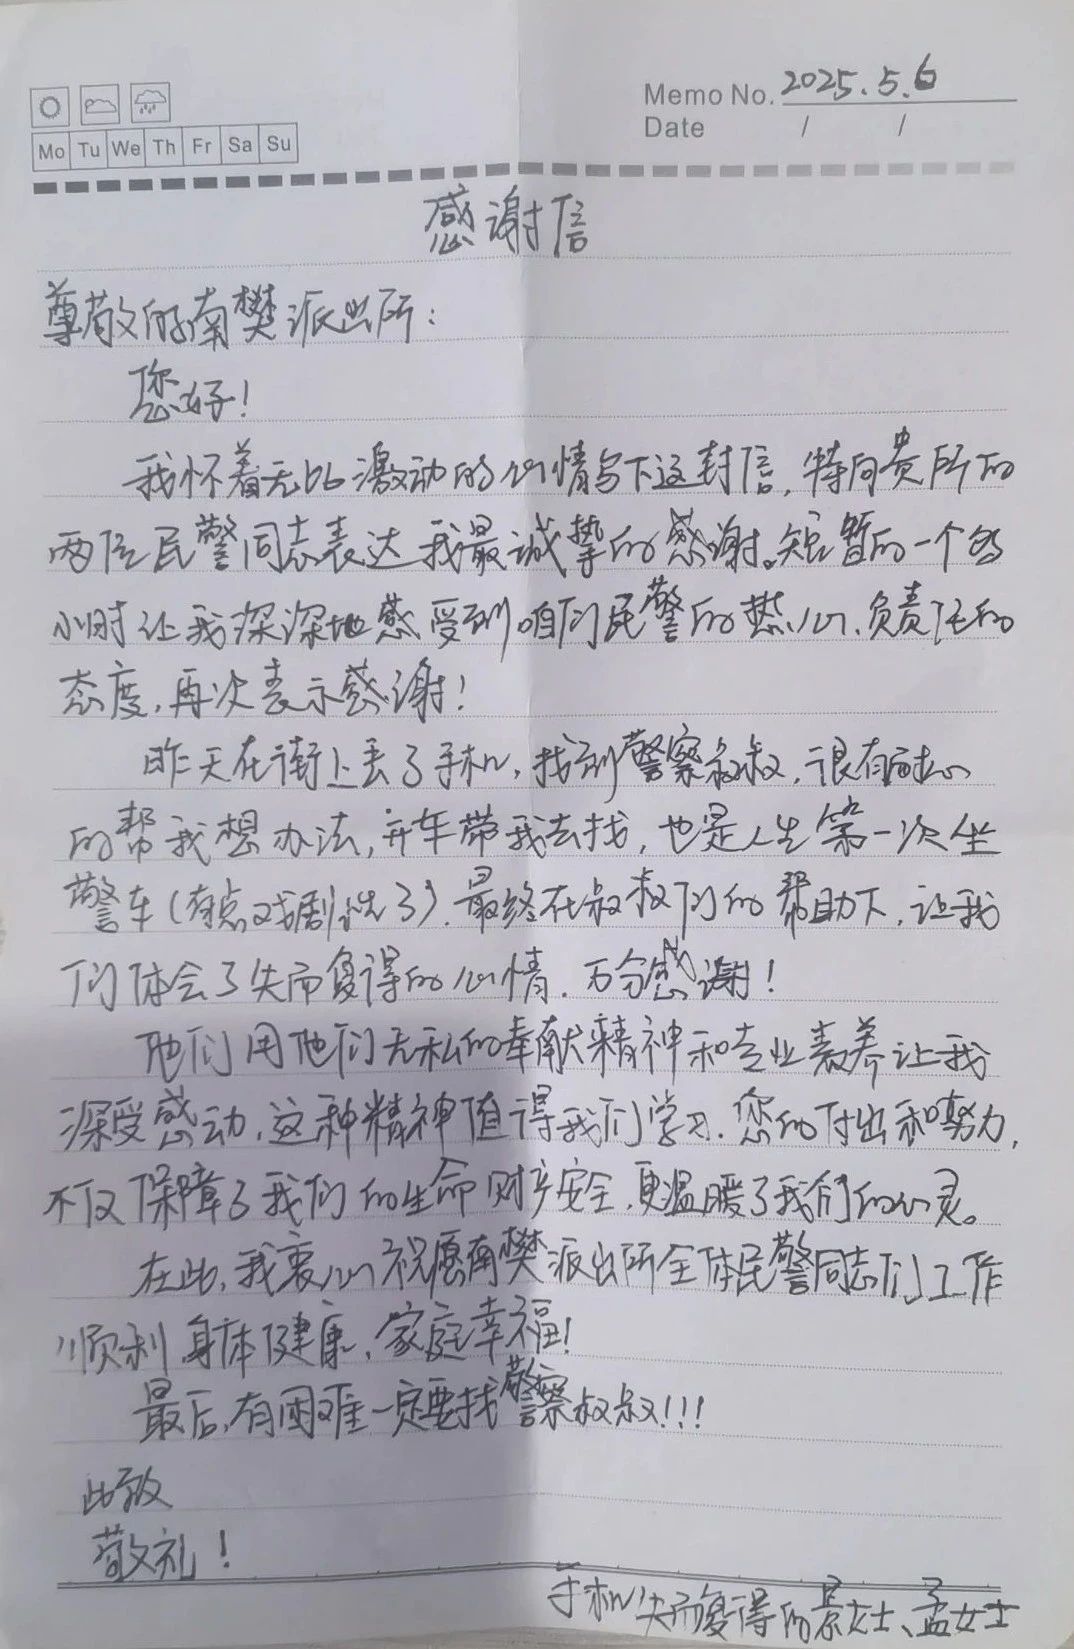 Memo No. 2025.5.6
Date / /
Mo Tu We Th Fr Sa Su
感谢信
尊敬的南樊派出所：
您好！
我怀着无比激动的心情写下这封信，特向贵所的
两位民警同志表达我最诚挚的感谢。短暂的一个多
小时让我深深地感受到咱们民警的热心、负责任的
态度，再次表示感谢！
昨天在街上丢了手机，找到警察叔叔，很有耐心
的帮我想办法，开车带我去找，也是人生第一次坐
警车（有点戏剧性了）。最终在叔叔们的帮助下，让我
们体会了失而复得的心情，万分感谢！
他们用他们无私的奉献精神和专业素养让我
深受感动，这种精神值得我们学习。您的付出和努力，
不仅保障了我们的生命财产安全，更温暖了我们的心灵。
在此，我衷心祝愿南樊派出所全体民警同志们工作
顺利，身体健康，家庭幸福！
最后，有困难一定要找警察叔叔！！！
此致
敬礼！
手机失而复得的景女士、孟女士